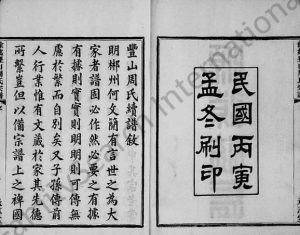 民國丙寅
孟冬刷印
豐山周氏續譜敘
明郴州何文簡有言世之為大
家者譜固必作然必要之有據
有據則實實則明明則可傳無
處於繁而自別矣又子孫傳前
人行業惟有文藏於家其先德
所繫豈但以備宗譜上之裨國